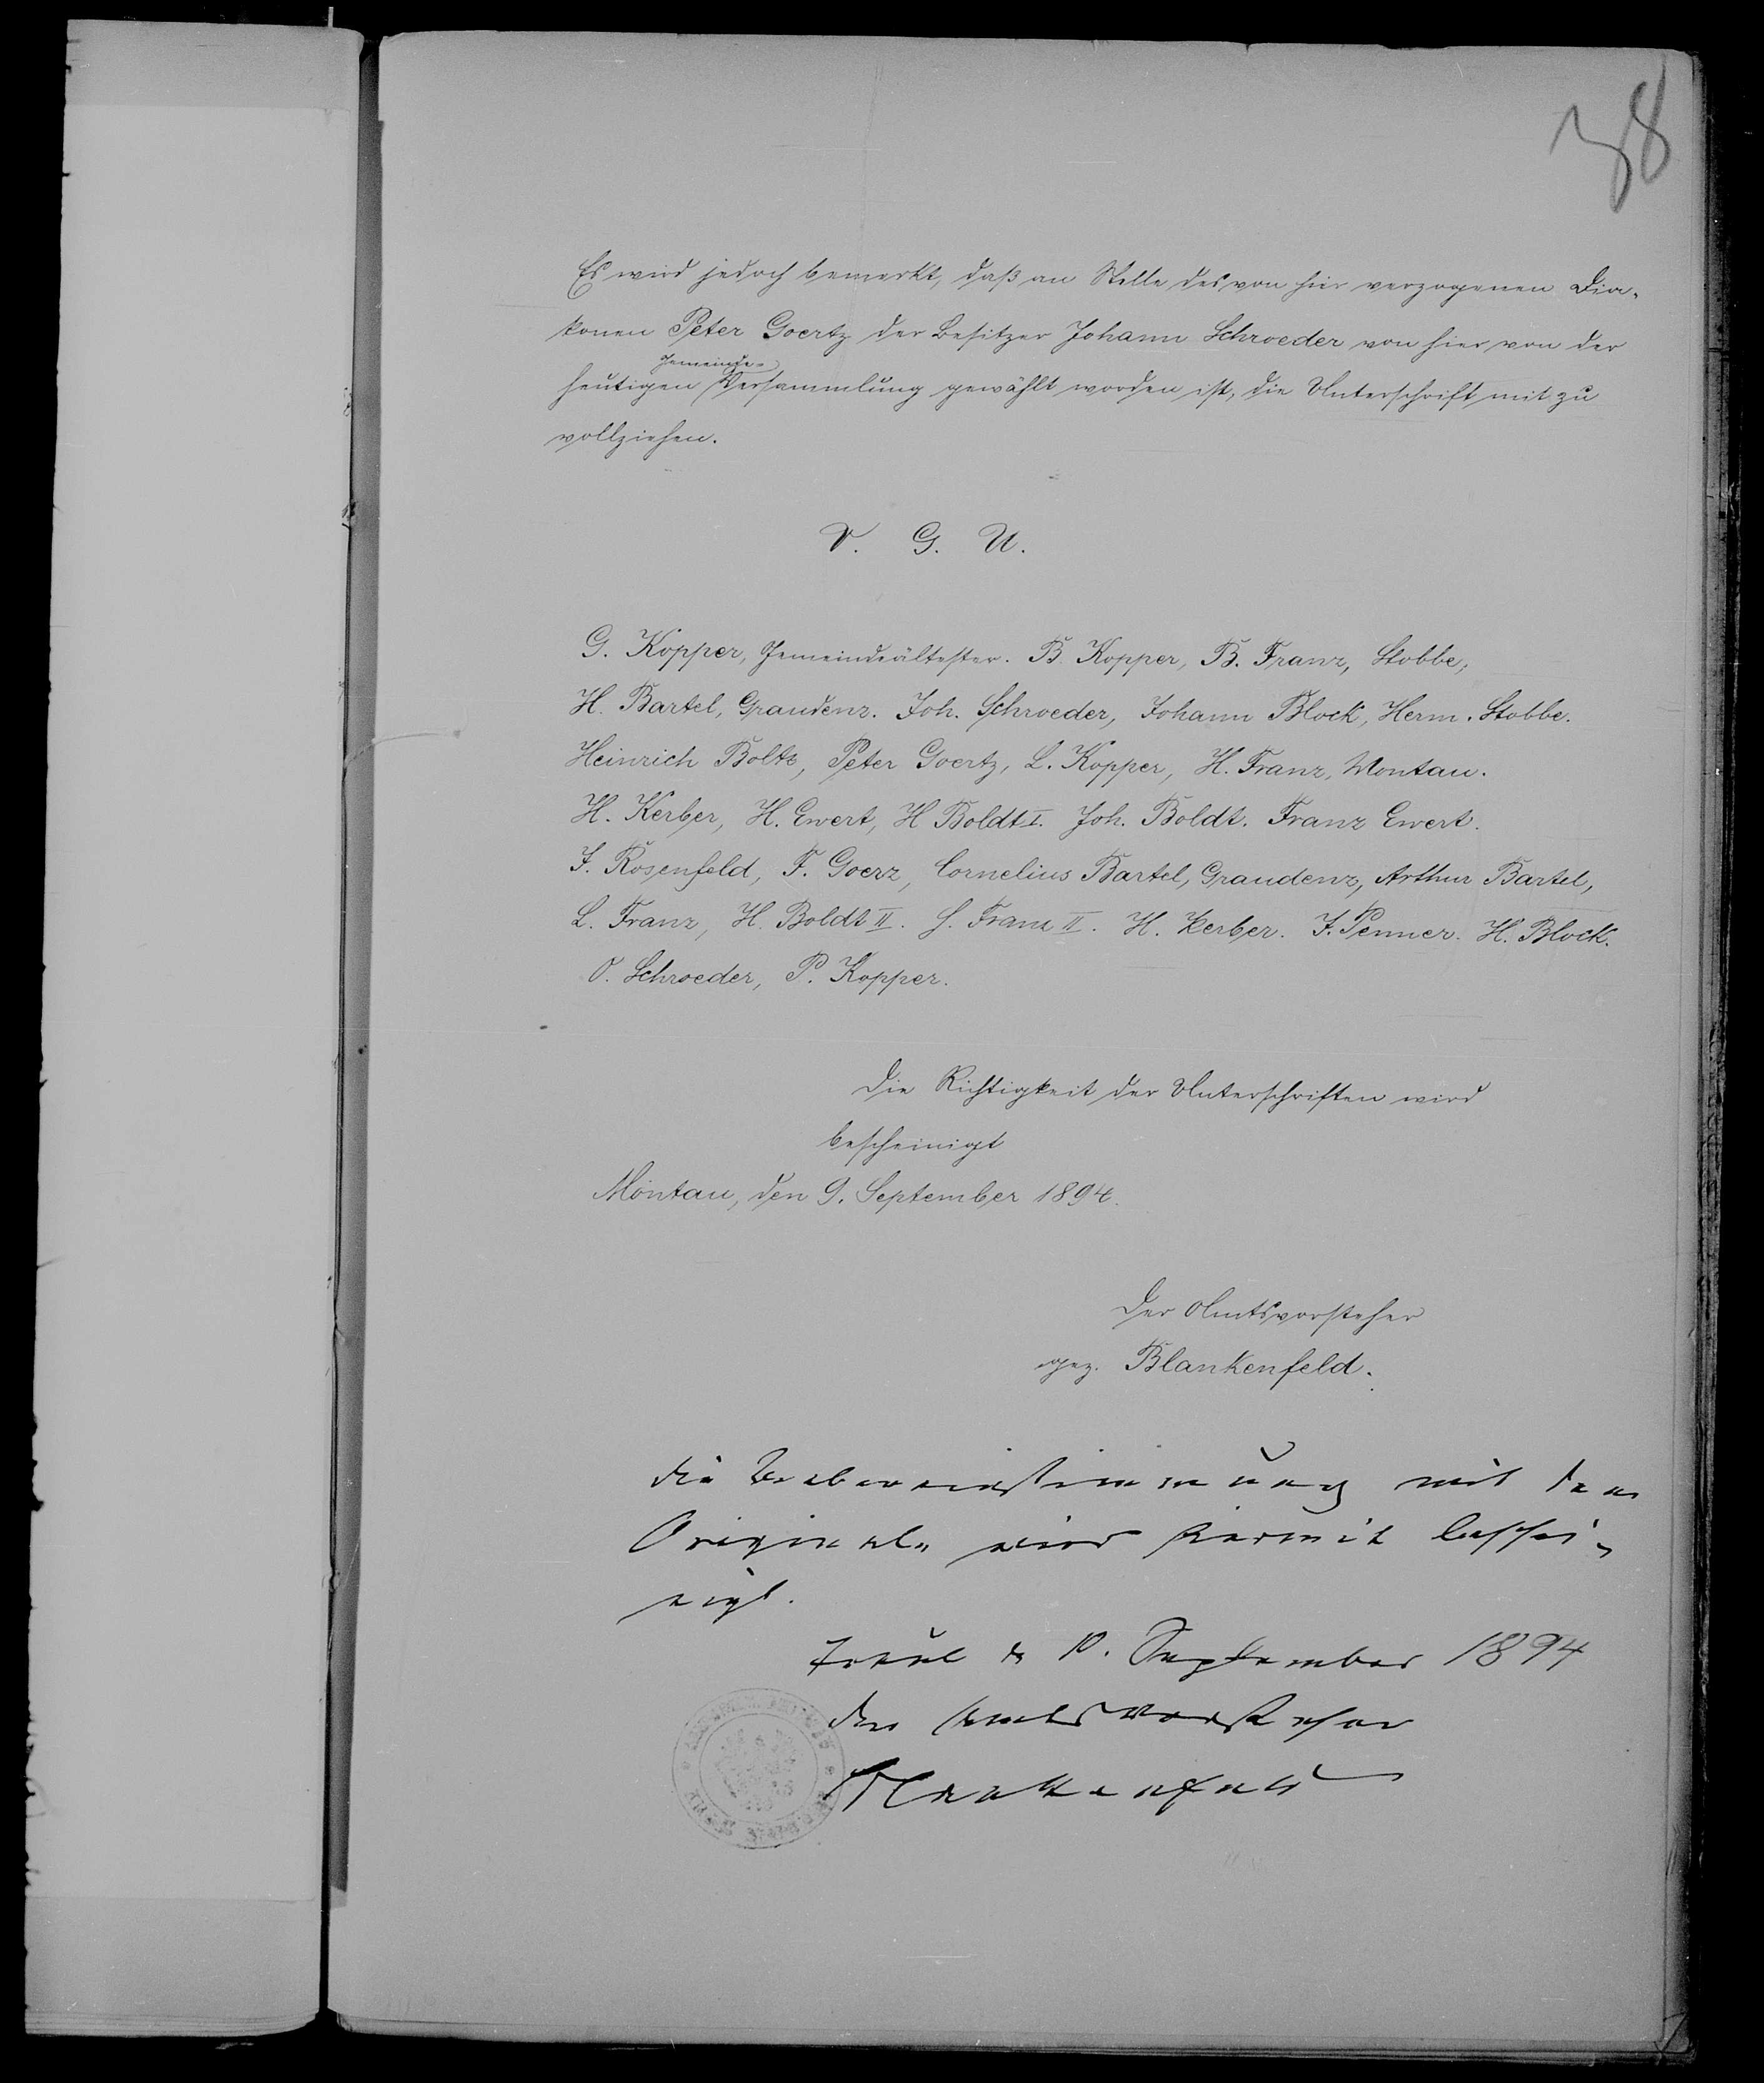 38
Es wird jedoch bemerkt, daß an Stelle des von hier verzogenen Dia-
konen Peter Goertz der Besitzer Johann Schroeder von hier von der
Gemeinde-
heutigen Versammlung gewählt worden ist, die Unterschrift mit zu
vollziehen.
V. G. U.
G. Kopper, Gemeindeältester. B. Kopper, B. Franz, Stobbe,
H. Bartel, Graudenz. Joh. Schroeder, Johann Block, Herm. Stobbe.
Heinrich Boltz, Peter Goertz, L. Kopper, H. Franz, Montau.
H. Kerber, H. Ewert, H Boldt I. Joh. Boldt. Franz Ewert.
F. Rosenfeld, F. Goerz, Cornelius Bartel, Graudenz, Arthur Bartel,
L. Franz, H. Boldt II. H. Franz II. H. Kerber. F. Penner. H. Block.
O. Schroeder, P. Kopper.
Die Richtigkeit der Unterschriften wird
bescheinigt
Montau, den 9. September 1894.
Der Amtsvorsteher
gez. Blankenfeld.
Die Uebereinstimmung mit dem
Originale wird hiermit beschei-
nigt.
10. September 1894
Der Amtsvorsteher
Blankenfeld